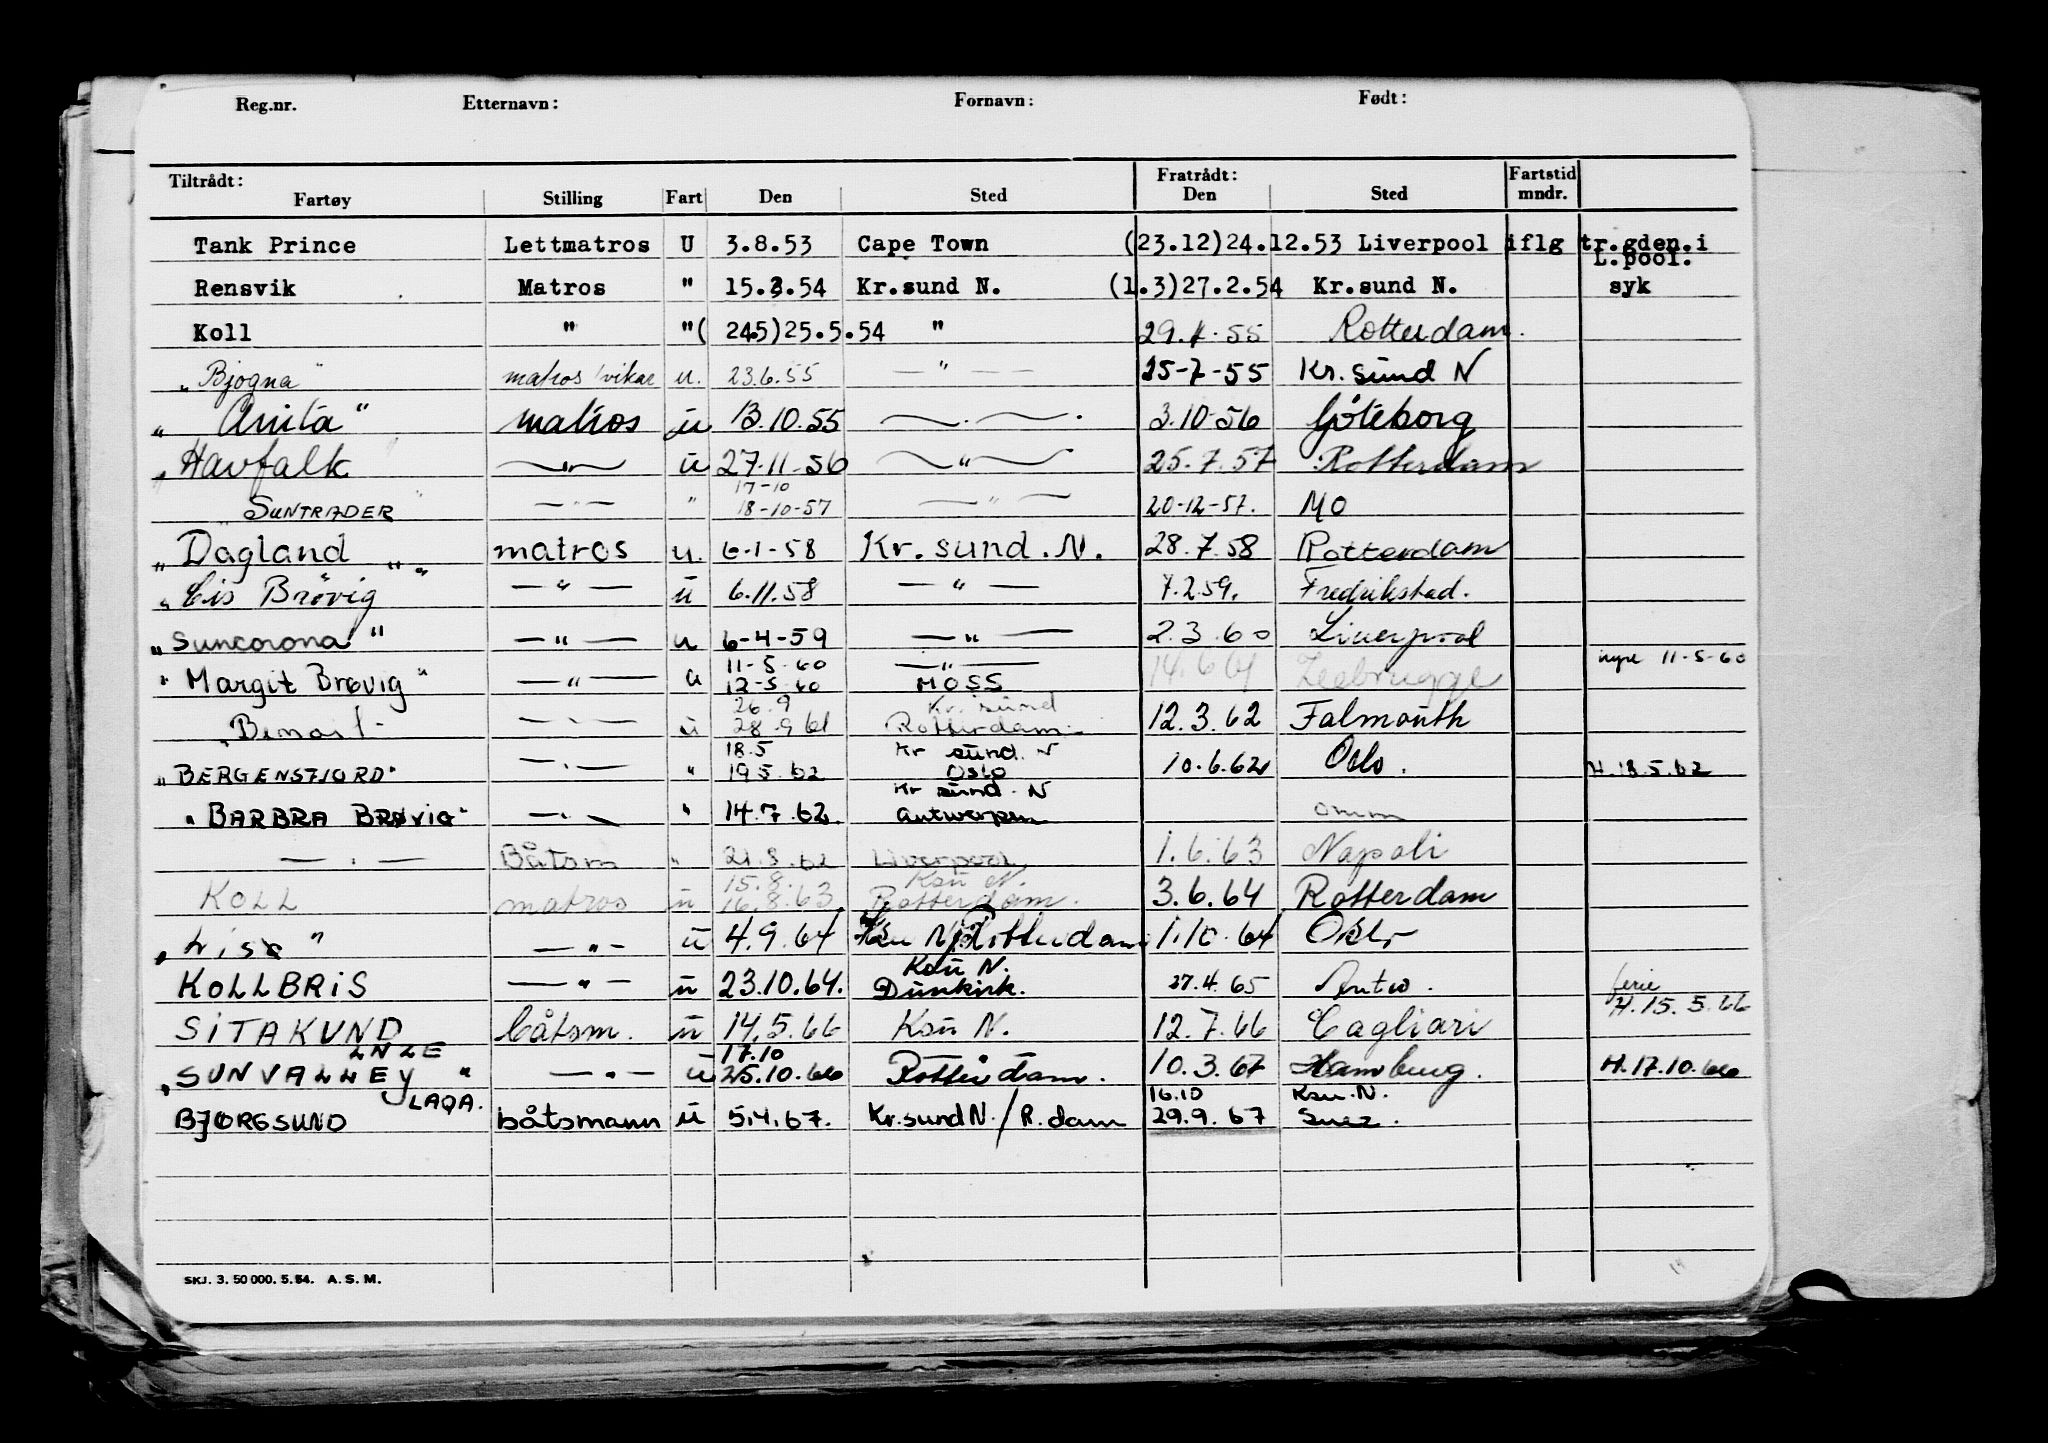 Reg.nr. Etternavn: Fornavn: Født:
Tiltrådt: Fratrådt: Fartstid
Fartøy Stilling Fart Den Sted Den Sted mndr.
Tank Prince Lettmatros U 3.8.53 Cape Town (23.12)24.12.53 Liverpool iflg tr.gden.i
L.pool.
Rensvik Matros " 15.2.54 Kr.sund N. (1.3)27.2.54 Kr.sund N. syk
Koll " "( 245)25.5.54 " 29.4.55 Rotterdam.
"Bjogna" matros/vikar u. 23.6.55 — " — 25-7-55 Kr. sund N
"Anita" matros u 13.10.55 — . — 3.10-56 Göteborg
"Havfalk — " — u 27-11-56 — " — 25.7.57 Rotterdam
17-10
SUNTRADER" — " — " 18-10-57 — " — 20-12-57. MO
"Dagland" matros u. 6-1-58 Kr. sund. N. 28.7.58 Rotterdam
"Cis Brøvig" — " — u 6.11.58 — " — 7.2.59. Fredrikstad.
"Suncorona" — " — u 6-4-59 — " — 2.3.60 Liverpool
11-5-60 — " — 11-5-60
"Margit Brøvig" — " — u 12-5-60 MOSS 14.6.61 Zeebrugge
26.9 Kr. sund
— " — u 28.9.61 Rotterdam. 12.3.62 Falmouth
18.5 Kr sund. N
"BERGENSFJORD" — " — " 19.5.62 Oslo 10.6.62 Oslo. H.18.5.62
Kr sund. N
"BARBRA BRØVIG" — " — " 14.7.62 Antwerpen omm
— " — Båtsm " 21.8.62 Liverpool 1.6.63 Napoli
15.8. Ksu N.
KOLL matros u 16.8.63 Rotterdam. 3.6.64 Rotterdam
"Lisa" — " — u 4.9.64 Ksu N/Rotterdam 1.10.64 Oslo
Ksu N.
KOLLBRIS — " — u 23.10.64. Dunkirk. 27.4.65 Antw. ferie
H.15.5.66
SITAKUND båtsm. u 14.5.66 Ksu N. 12.7.66 Cagliari
LNZE 17.10
"SUNVALLEY" — " — u 25.10.66 Rotterdam. 10.3.67 Hamburg. H.17.10.66
LAQA. 16.10 Ksu. N.
BJORGSUND båtsmann u 5.4.67. Kr.sund N./R.dam 29.9.67 Suez.
SKJ. 3. 50 000. 5. 54. A. S. M.